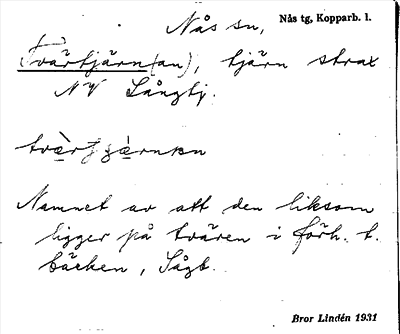 Nås sn, Nås tg, Kopparb. l.
Tvärtjärn(an), tjärn strax
NV Långbj.
Namnet av att den liksom
ligger på tvären i förh. t.
bäcken, Sågb.
Bror Lindén 1931